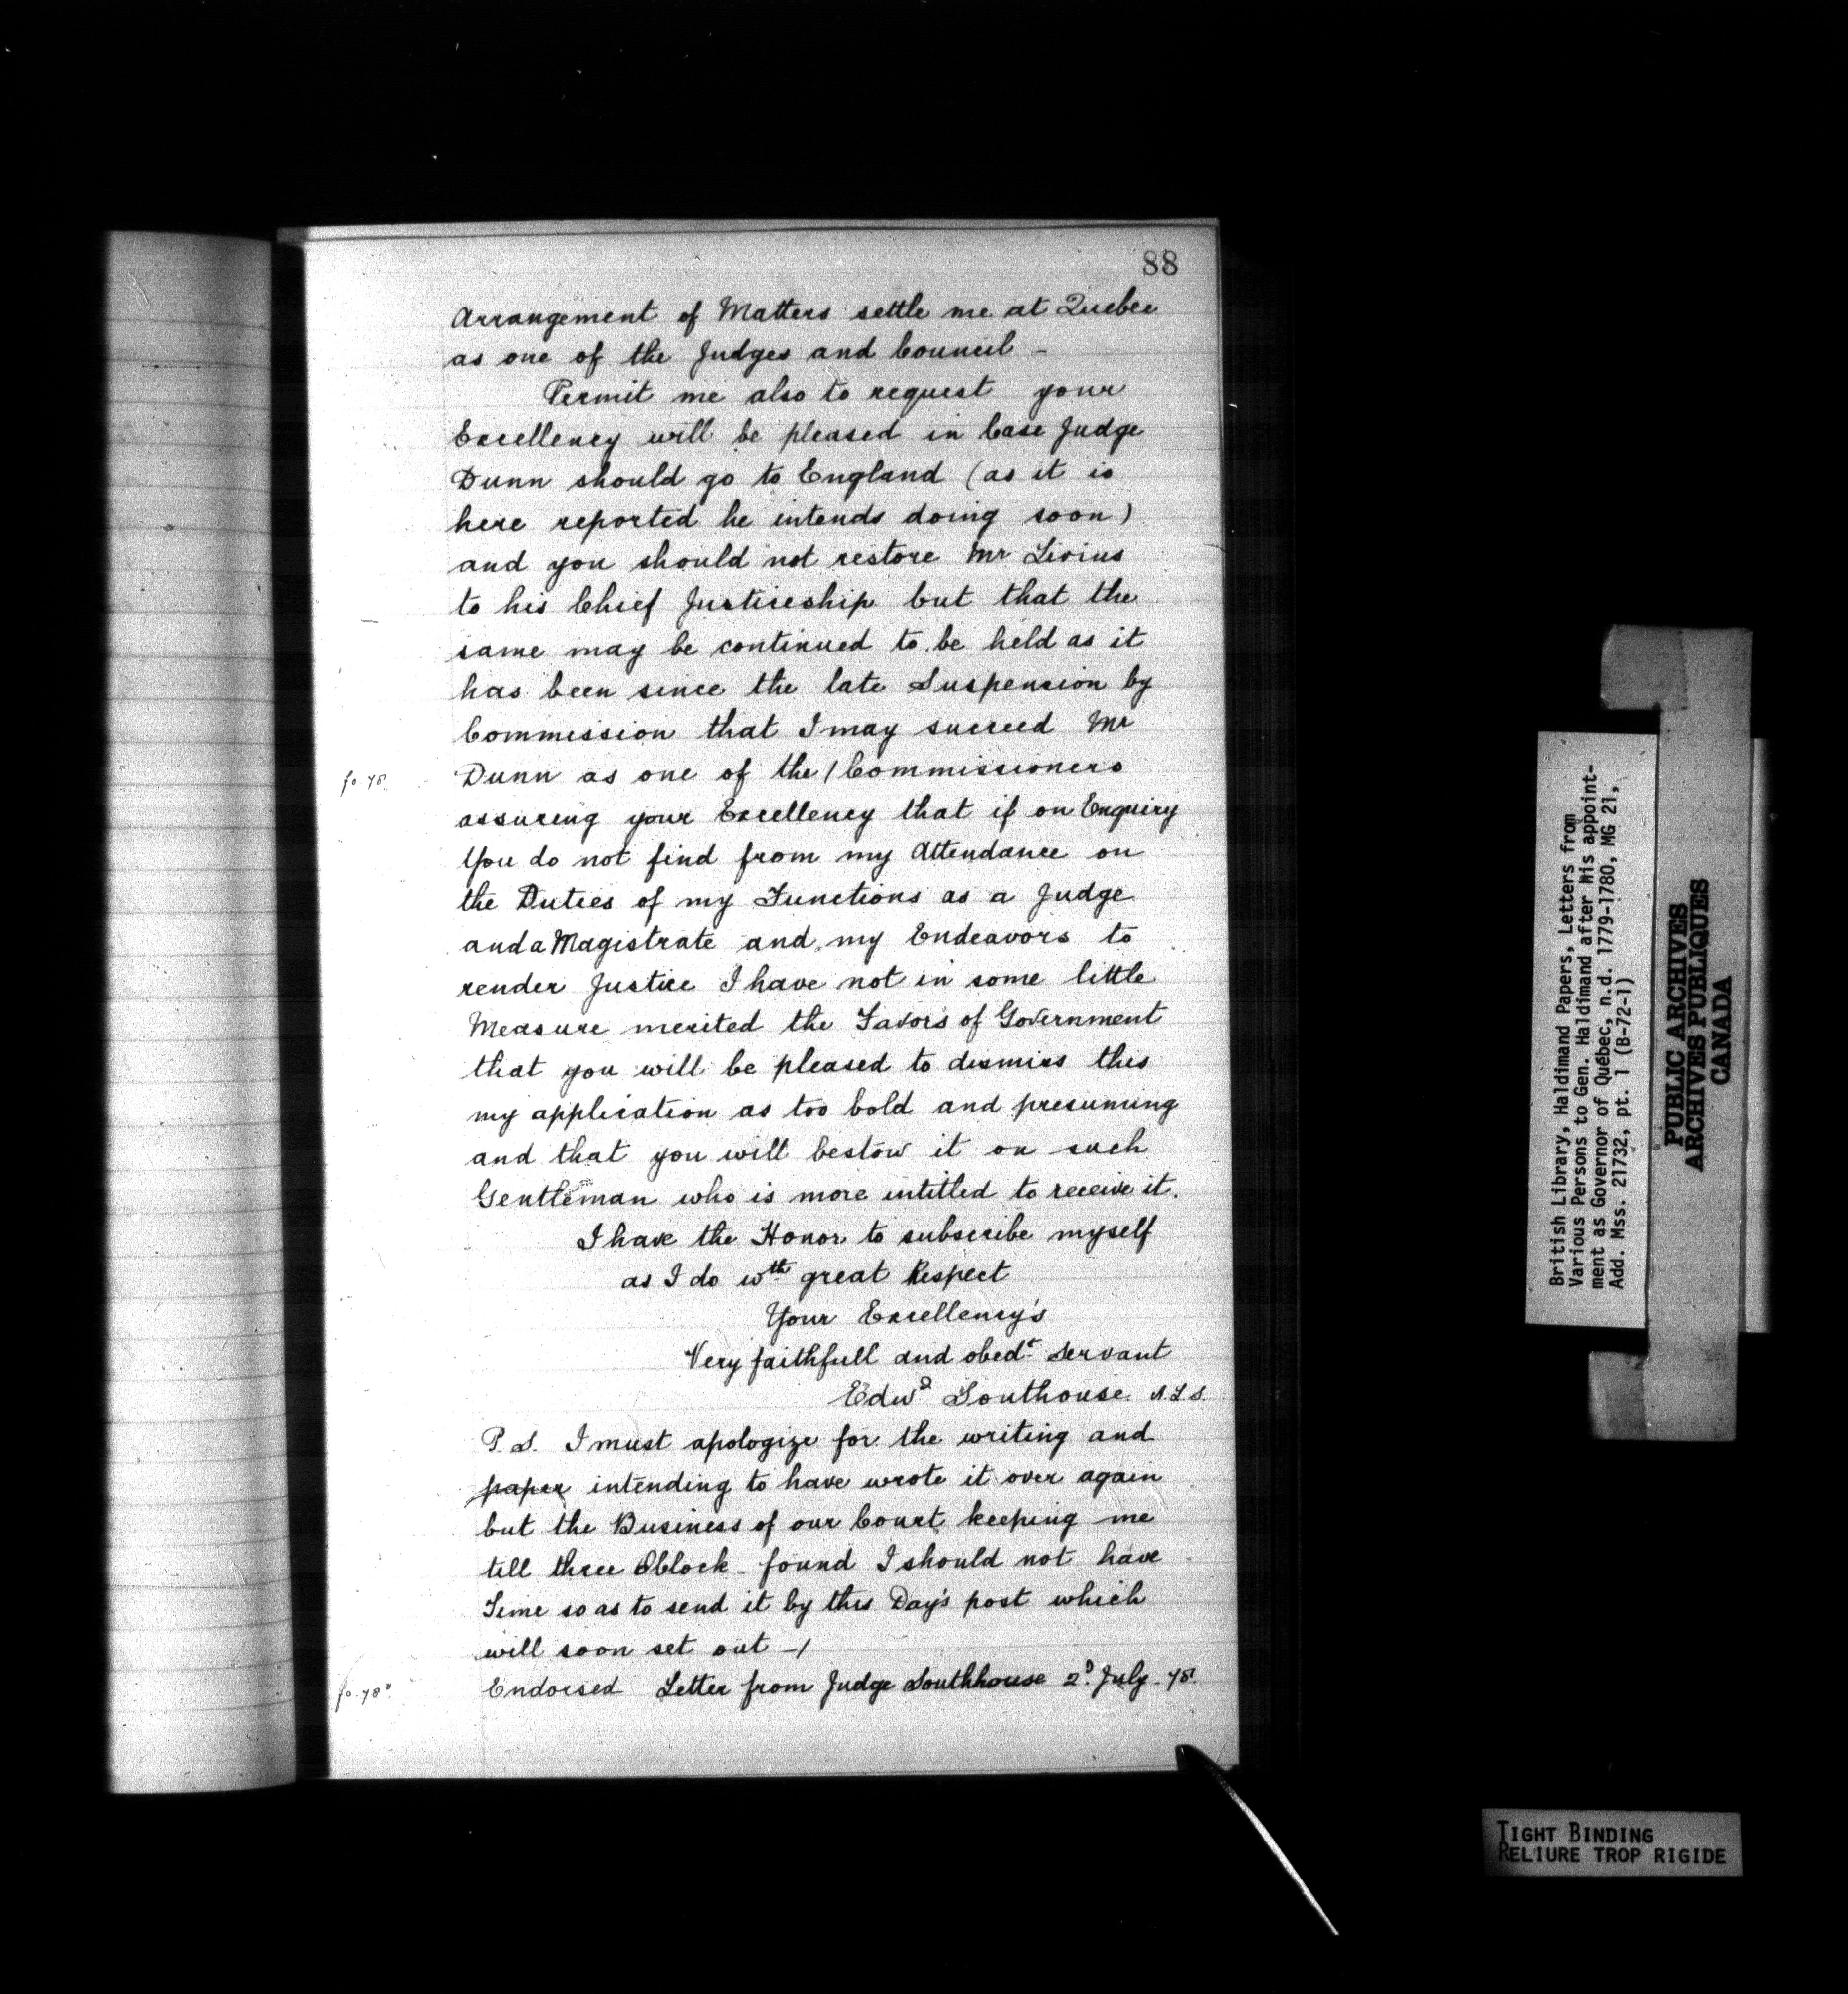 88
Arrangement of Matters settle me at Quebec
as one of the Judges and Council -
Permit me also to request your
Excellency will be pleased in Case Judge
Dunn should go to England (as it is
here reported he intends doing soon)
and you should not restore Mr Livius
to his Chief Justiceship but that the
same may be continued to be held as it
has been since the late Suspension by
Commission that I may succeed Mr
fo. 78. Dunn as one of the / Commissioners
assuring your Excellency that if on Enquiry
You do not find from my Attendance on
the Duties of my Functions as a Judge
and a Magistrate and my Endeavors to
render Justice I have not in some little
Measure merited the Favors of Government
that you will be pleased to dismiss this
my application as too bold and presuming
and that you will bestow it on such
Gentleman who is more intitled to receive it.
I have the Honor to subscribe myself
as I do wth great Respect
Your Excellency's
Very faithfull and obedt Servant
Edwd Southouse. A.L.S.
P.S. I must apologize for the writing and
paper intending to have wrote it over again
but the Business of our Court keeping me
till three OClock - found I should not have
Time so as to send it by this Day's post which
will soon set out -/
fo. 78v. Endorsed Letter from Judge Southhouse 2d July - 78.
British Library, Haldimand Papers, Letters from
Various Persons to Gen. Haldimand after His appoint-
ment as Governor of Québec, n.d. 1779-1780, MG 21,
Add. Mss. 21732, pt. 1 (B-72-1)
PUBLIC ARCHIVES
ARCHIVES PUBLIQUES
CANADA
TIGHT BINDING
RELIURE TROP RIGIDE